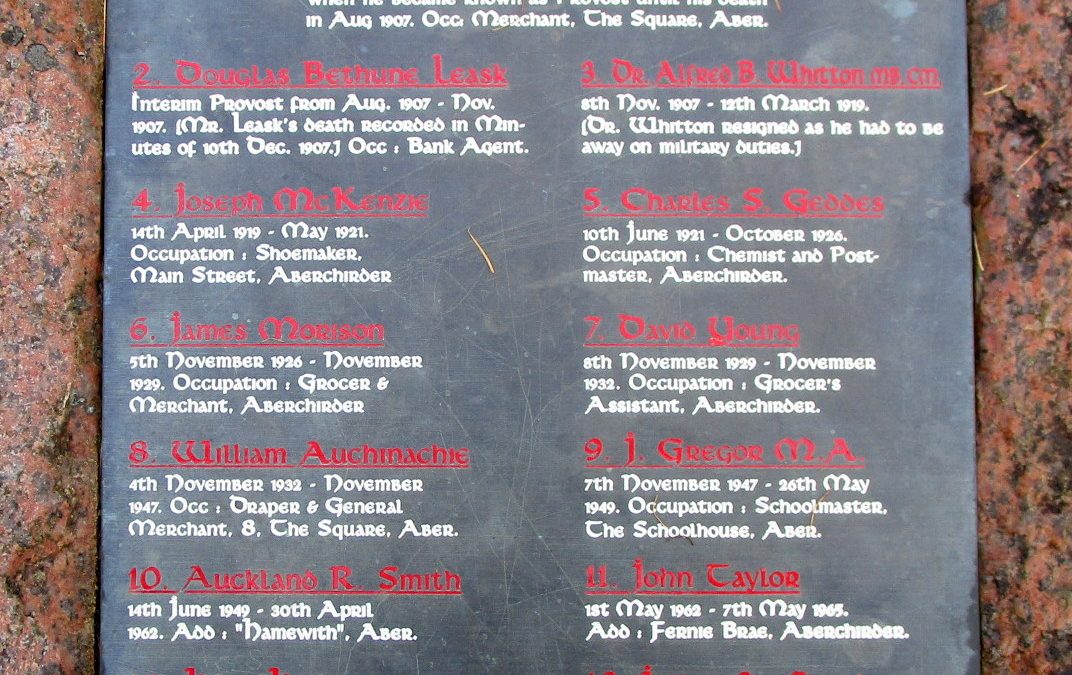 when he became known as Provost until his death
in Aug 1907. Occ: Merchant, The Square, Aber.
2. Douglas Bethune Leask
Interim Provost from Aug. 1907 - Nov.
1907. [Mr. Leask's death recorded in Min-
utes of 10th Dec. 1907.] Occ : Bank Agent.
3. Dr. Alfred B. Whitton MB. CM.
8th Nov. 1907 - 12th March 1919.
[Dr. Whitton resigned as he had to be
away on military duties.]
4. Joseph McKenzie
14th April 1919 - May 1921.
Occupation : Shoemaker,
Main Street, Aberchirder
5. Charles S. Geddes
10th June 1921 - October 1926.
Occupation : Chemist and Post-
master, Aberchirder.
6. James Morison
5th November 1926 - November
1929. Occupation : Grocer &
Merchant, Aberchirder
7. David Young
8th November 1929 - November
1932. Occupation : Grocer's
Assistant, Aberchirder.
8. William Auchinachie
4th November 1932 - November
1947. Occ : Draper & General
Merchant, 8, The Square, Aber.
9. J. Gregor M.A.
7th November 1947 - 26th May
1949. Occupation : Schoolmaster,
The Schoolhouse, Aber.
10. Auckland R. Smith
14th June 1949 - 30th April
1962. Add : "Hamewith", Aber.
11. John Taylor
1st May 1962 - 7th May 1965.
Add : Fernie Brae, Aberchirder.